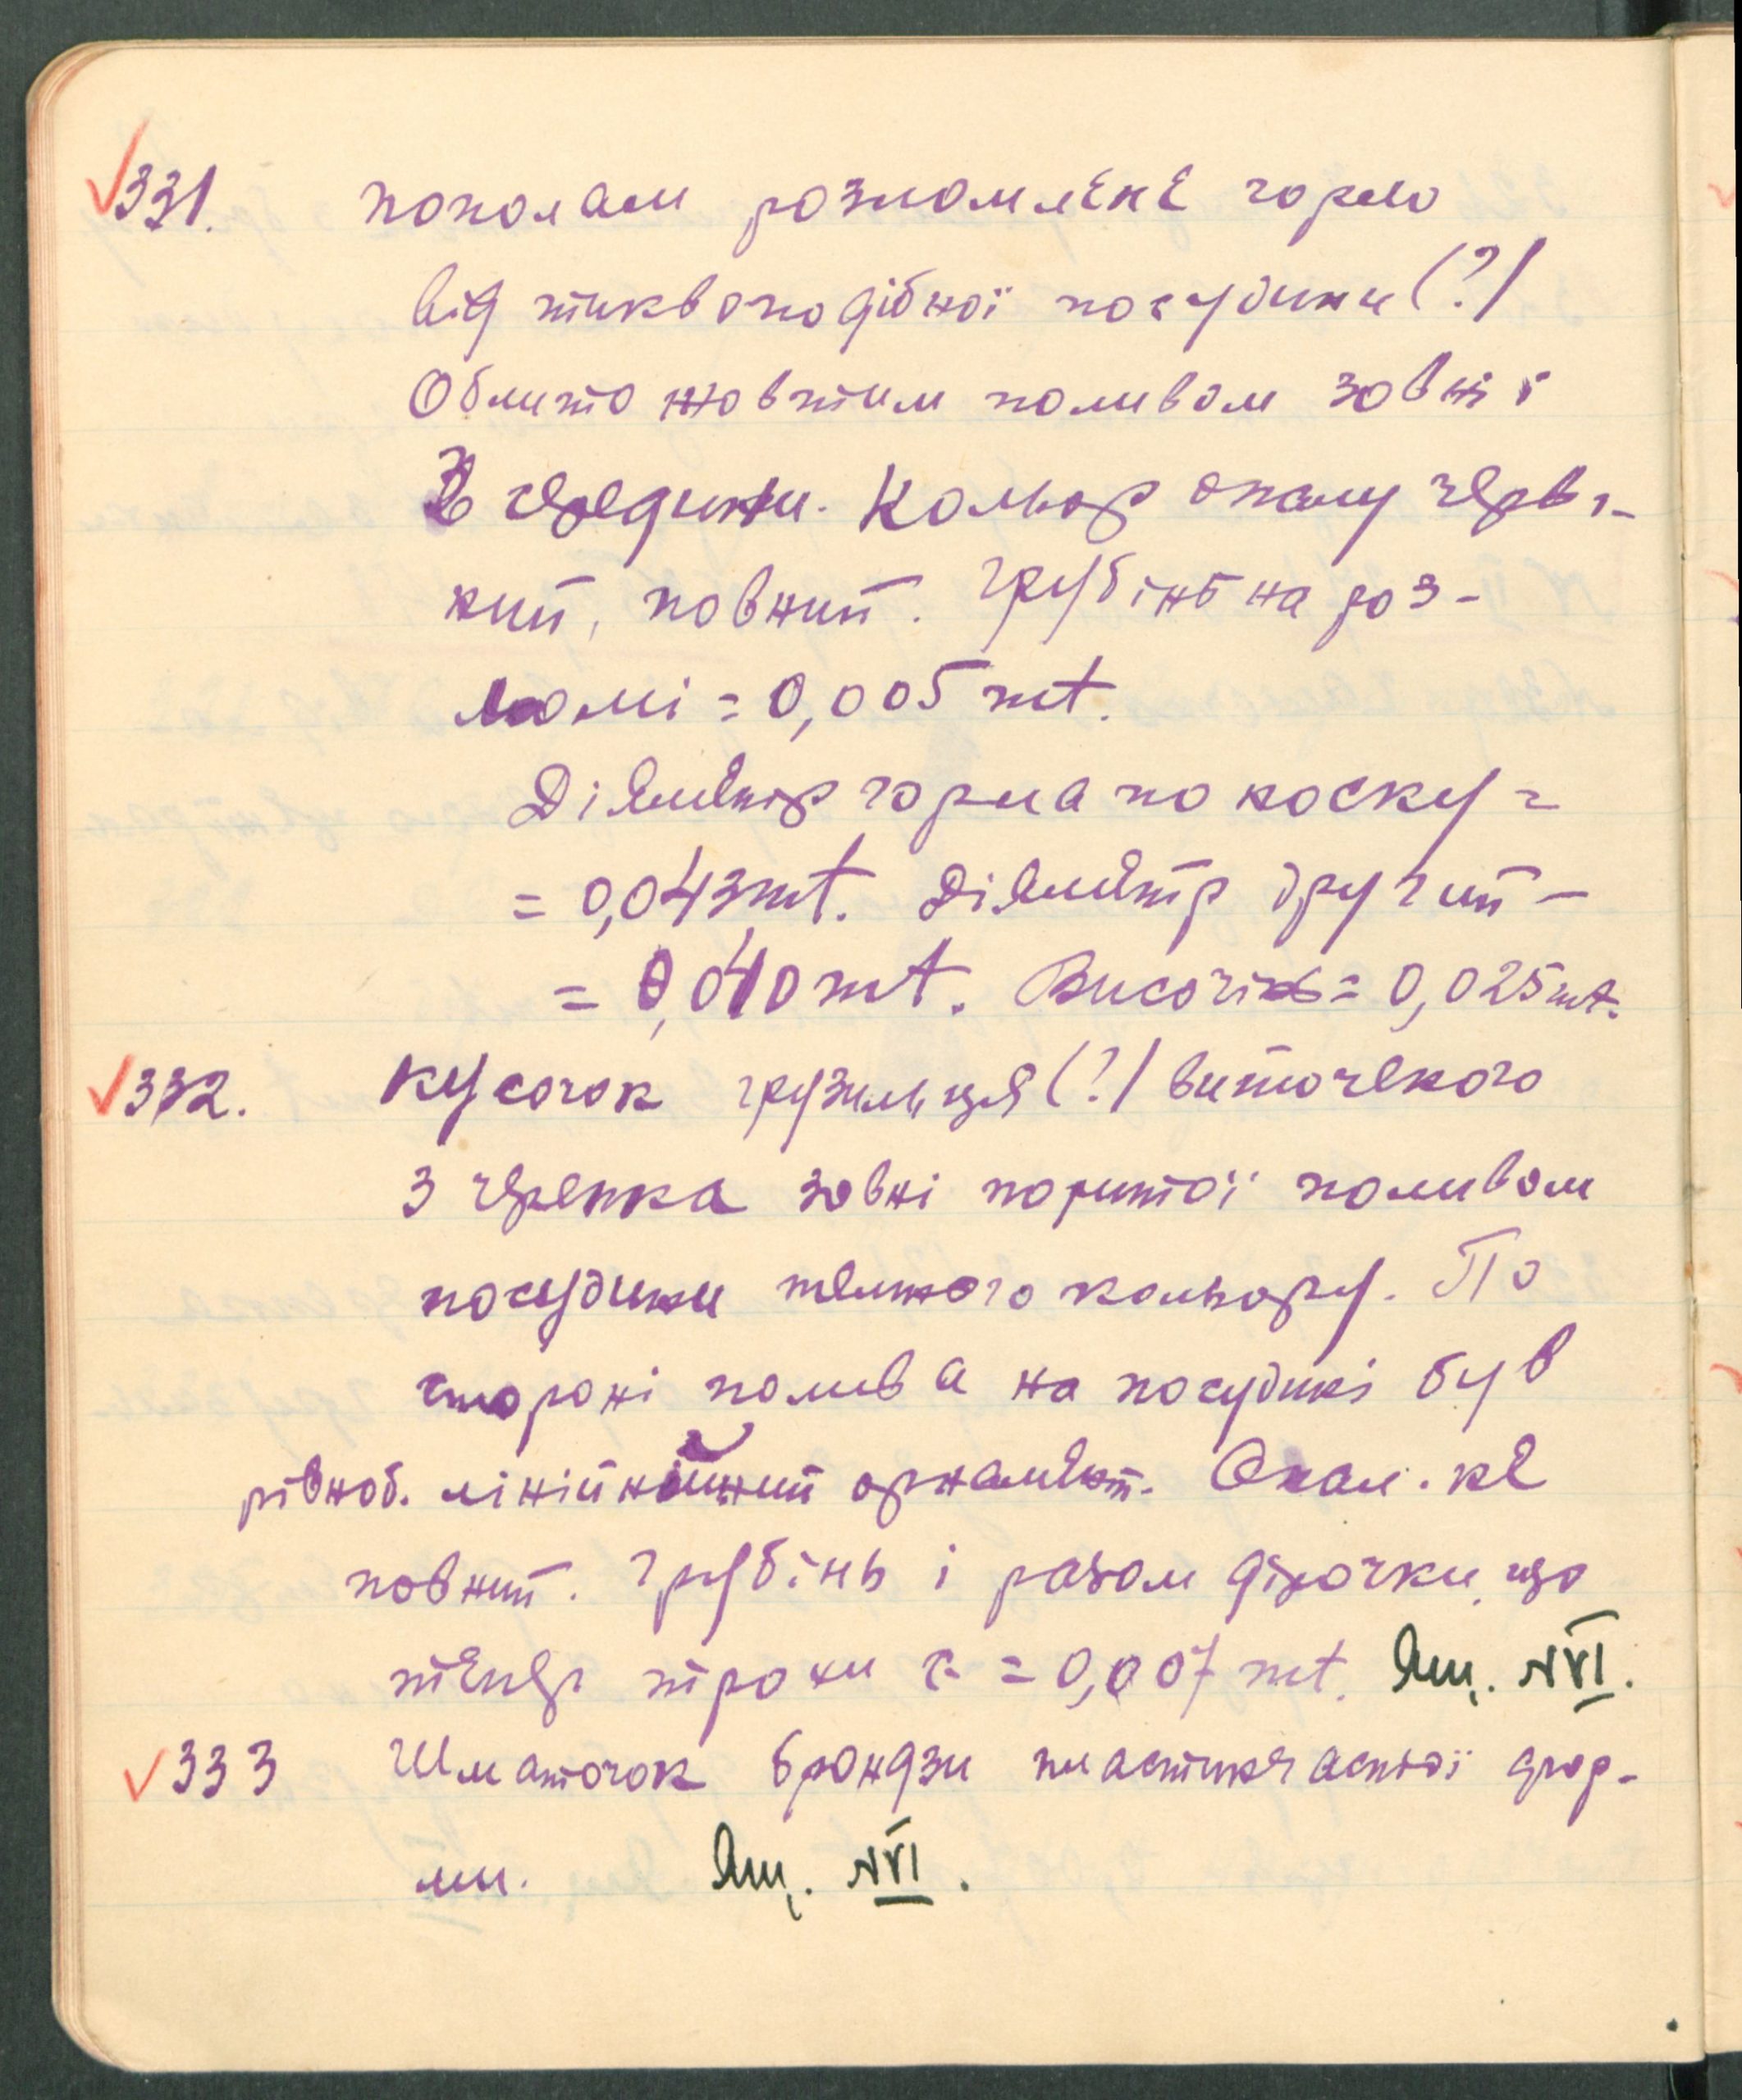 331. пополам розломлене горло
від тиквоподібної посудини (?)
Облито жовтим поливом зовні і
з середини. Кольор опалу черво-
ний, повний. Грубінь на роз-
ломі = 0,005 mt.
Діяметр горла по носку =
= 0,043 mt. Діяметр другий -
= 0,040 mt. Височінь = 0,025 mt.
332. Кусочок грузильця (?) виточеного
з черепка зовні политої поливом
посудини темного кольору. По
стороні полива на посудині був
рівноб. лінійний орнамент. Опал. не
повний. Грубінь і разом дірочки, що
тепер трохи є = 0,007 mt. Ящ. № VI.
333 Шматочок бронзи пластинчастої фор-
ми. Ящ. № VI.